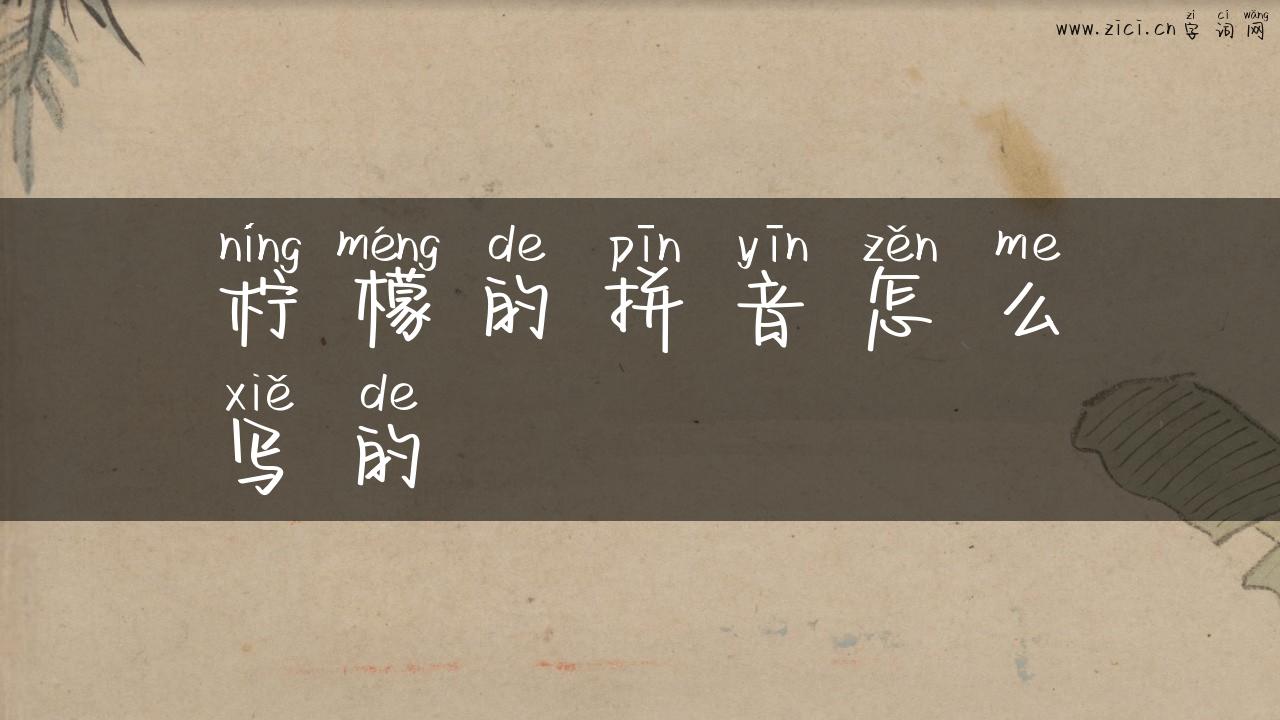 zì cí wǎng
www.zici.cn 字词网
níng méng de pīn yīn zěn me
柠檬的拼音怎么
xiě de
写的